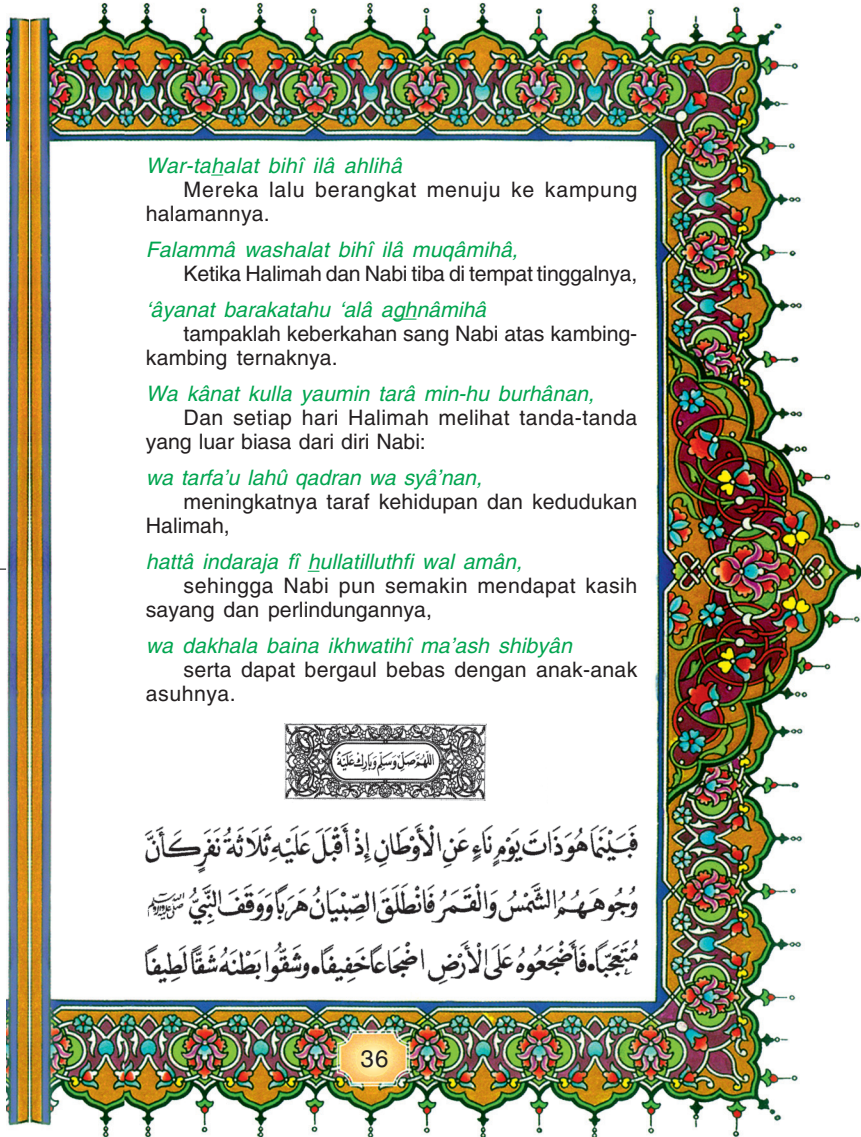 War-tahalat bihî ilâ ahlihâ
Mereka lalu berangkat menuju ke kampung
halamannya.
Falammâ washalat bihî ilâ muqâmihâ,
Ketika Halimah dan Nabi tiba di tempat tinggalnya,
‘âyanat barakatahu ‘alâ aghnâmihâ
tampaklah keberkahan sang Nabi atas kambing-
kambing ternaknya.
Wa kânat kulla yaumin tarâ min-hu burhânan,
Dan setiap hari Halimah melihat tanda-tanda
yang luar biasa dari diri Nabi:
wa tarfa’u lahû qadran wa syâ’nan,
meningkatnya taraf kehidupan dan kedudukan
Halimah,
hattâ indaraja fî hullatilluthfi wal amân,
sehingga Nabi pun semakin mendapat kasih
sayang dan perlindungannya,
wa dakhala baina ikhwatihî ma’ash shibyân
serta dapat bergaul bebas dengan anak-anak
asuhnya.
اَللّٰهُمَّ صَلِّ وَسَلِّمْ وَبَارِكْ عَلَيْهِ
فَبَيْنَمَا هُوَ ذَاتَ يَوْمٍ نَاءٍ عَنِ الْأَوْطَانِ إِذْ أَقْبَلَ عَلَيْهِ ثَلَاثَةُ نَفَرٍ كَأَنَّ
وُجُوهَهُمُ الشَّمْسُ وَالْقَمَرُ فَانْطَلَقَ الصِّبْيَانُ هَرَبًا وَوَقَفَ النَّبِيُّ ﷺ
مُتَعَجِّبًا، فَأَضْجَعُوهُ عَلَى الْأَرْضِ اضْجَاعًا خَفِيفًا، وَشَقُّوا بَطْنَهُ شَقًّا لَطِيفًا
36